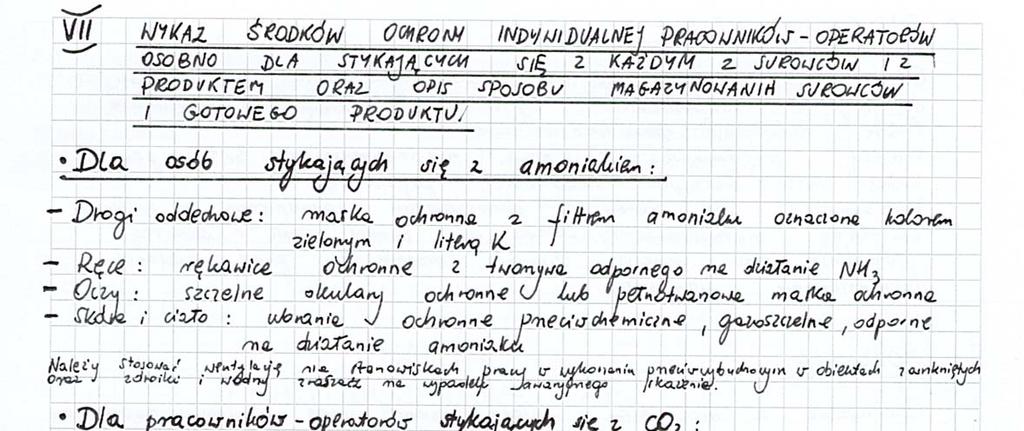 VII WYKAZ ŚRODKÓW OCHRONY INDYWIDUALNEJ PRACOWNIKÓW-OPERATORÓW
OSOBNO DLA STYKAJĄCYCH SIĘ Z KAŻDYM Z SUROWCÓW I Z
PRODUKTEM ORAZ OPIS SPOSOBU MAGAZYNOWANIA SUROWCÓW
I GOTOWEGO PRODUKTU.
• Dla osób stykających się z amoniakiem:
- Drogi oddechowe: maska ochronna z filtrem amoniaku oznaczone kolorem
zielonym i literą K
- Ręce: rękawice ochronne z tworzywa odpornego na działanie NH₃
- Oczy: szczelne okulary ochronne lub pełnotwarzowe maska ochronna
- Skóra i ciało: ubranie ochronne przeciwchemiczne, gazoszczelne, odporne
na działanie amoniaku
Należy stosować wentylację na stanowiskach pracy w wykonaniu przeciwwybuchowym w obiektach zamkniętych
oraz zdroiki i wodny zraszacz na wypadek awaryjnego skażenia.
• Dla pracowników-operatorów stykających się z CO₂: